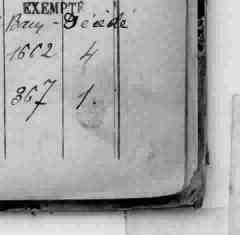 EXEMPTÉ
Décédé
1602 4
367 1.